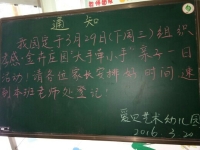 通知
我园定于3月29日(下周三)组织
孝感·金卉庄园"大手牵小手"亲子一日
活动!请各位家长安排好时间速
到本班老师处登记!
爱贝艺术幼儿园
2016.3.20